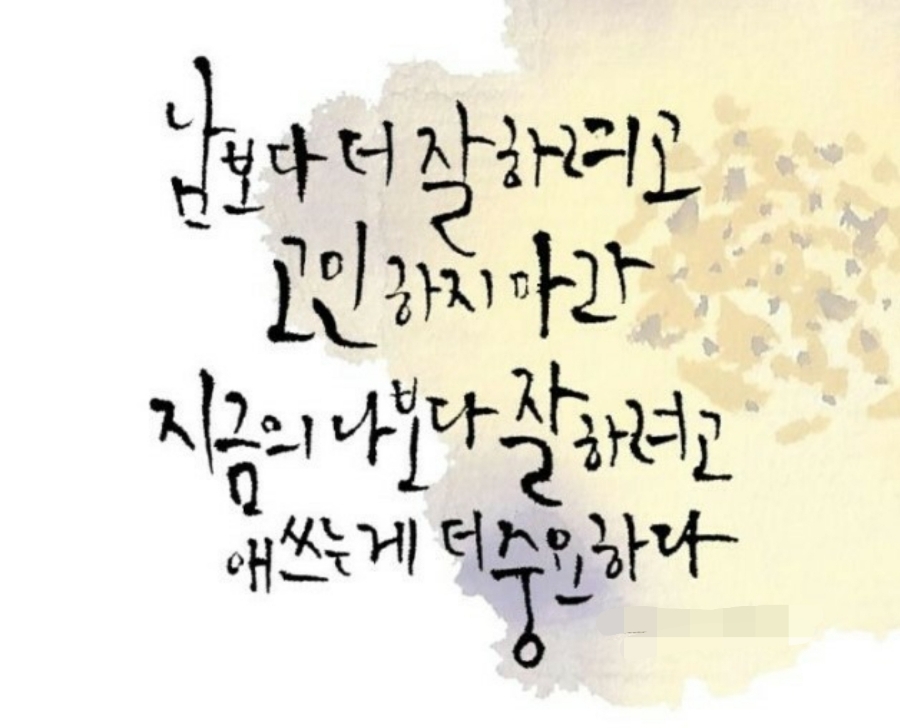 남보다 더 잘하려고
고민하지 마라
지금의 나보다 잘하려고
애쓰는 게 더 중요하다